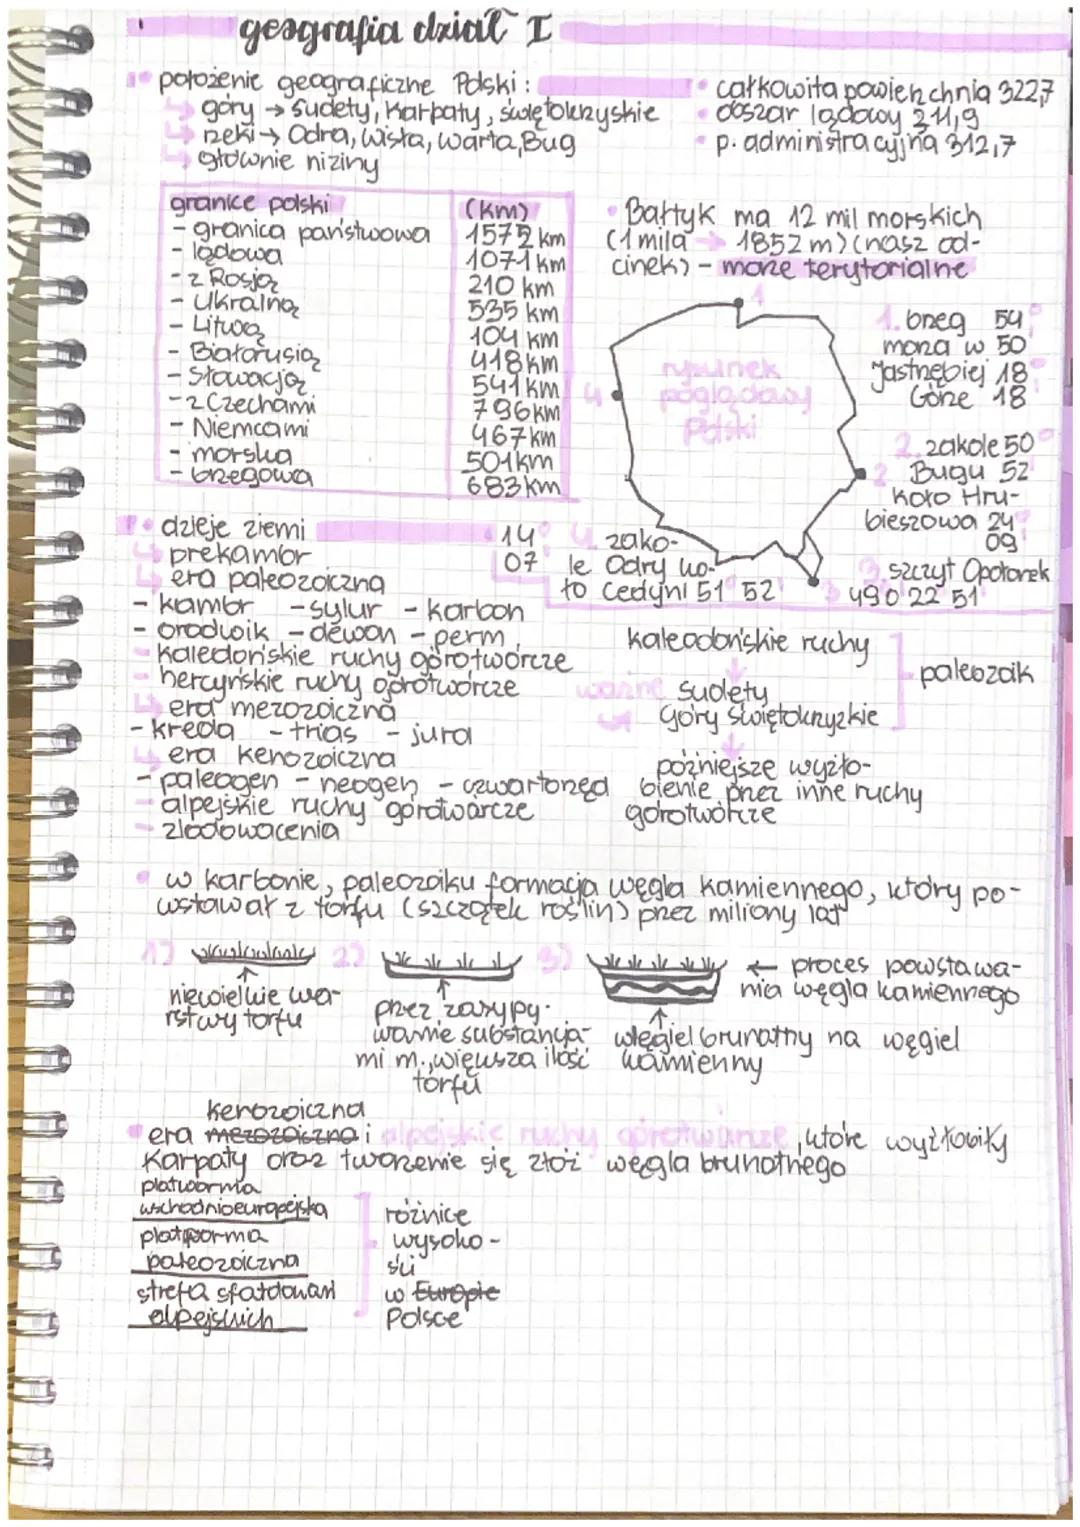 geografia dział I
• położenie geograficzne Polski:
↳ góry → Sudety, Karpaty, świętokrzyskie
↳ rzeki → Odra, Wisła, Warta, Bug
↳ głównie niziny
• całkowita powierzchnia 322,7
• obszar lądowy 311,9
• p. administracyjna 312,7
granice polski (km)
- granica państwowa 1572 km
- lądowa 1071 km
- z Rosją 210 km
- Ukrainą 535 km
- Litwą 104 km
- Białorusią 418 km
- Słowacją 541 km
- z Czechami 796 km
- Niemcami 467 km
- morska 501 km
- brzegowa 683 km
• Bałtyk ma 12 mil morskich
(1 mila → 1852 m) (nasz od-
cinek) - morze terytorialne
1
rysunek
poglądowy
Polski
4
2
3
1. brzeg 54°
morza w 50'
Jastrzębiej 18°
Górze 18'
2. zakole 50°
Bugu 52'
koło Hru-
bieszowa 24°
09'
3. szczyt Opołonek
490 22 51
14° 4. zako-
07' le Odry ko-
ło Cedyni 51° 52'
• dzieje ziemi
↳ prekambr
↳ era paleozoiczna
- kambr - sylur - karbon
- ordowik - dewon - perm
- kaledońskie ruchy górotwórcze
- hercyńskie ruchy górotwórcze
↳ era mezozoiczna
- kreda - trias - jura
↳ era kenozoiczna
- paleogen - neogen - czwartorzęd
- alpejskie ruchy górotwórcze
- zlodowacenia
kaledońskie ruchy
↓
ważne Sudety
↳ Góry Świętokrzyzkie
paleozoik
↓
późniejsze wyżło-
bienie przez inne ruchy
górotwórcze
• w karbonie, paleozoiku formacja węgla kamiennego, który po-
wstawał z torfu (szczątek roślin) przez miliony lat
1) 2) 3)
← proces powstawa-
nia węgla kamiennego
niewielkie wa-
rstwy torfu
przez zasypy-
wanie substancja-
mi m., większa ilość
torfu
węgiel brunatny na węgiel
kamienny
kenozoiczna
• era mezozoiczna i alpejskie ruchy górotwórcze, które wyżłobiły
Karpaty oraz tworzenie się złóż węgla brunatnego
platworma
wschodnioeuropejska
platforma
paleozoiczna
strefa sfałdowań
alpejskich
różnice
wysoko-
ści
w Europie
Polsce